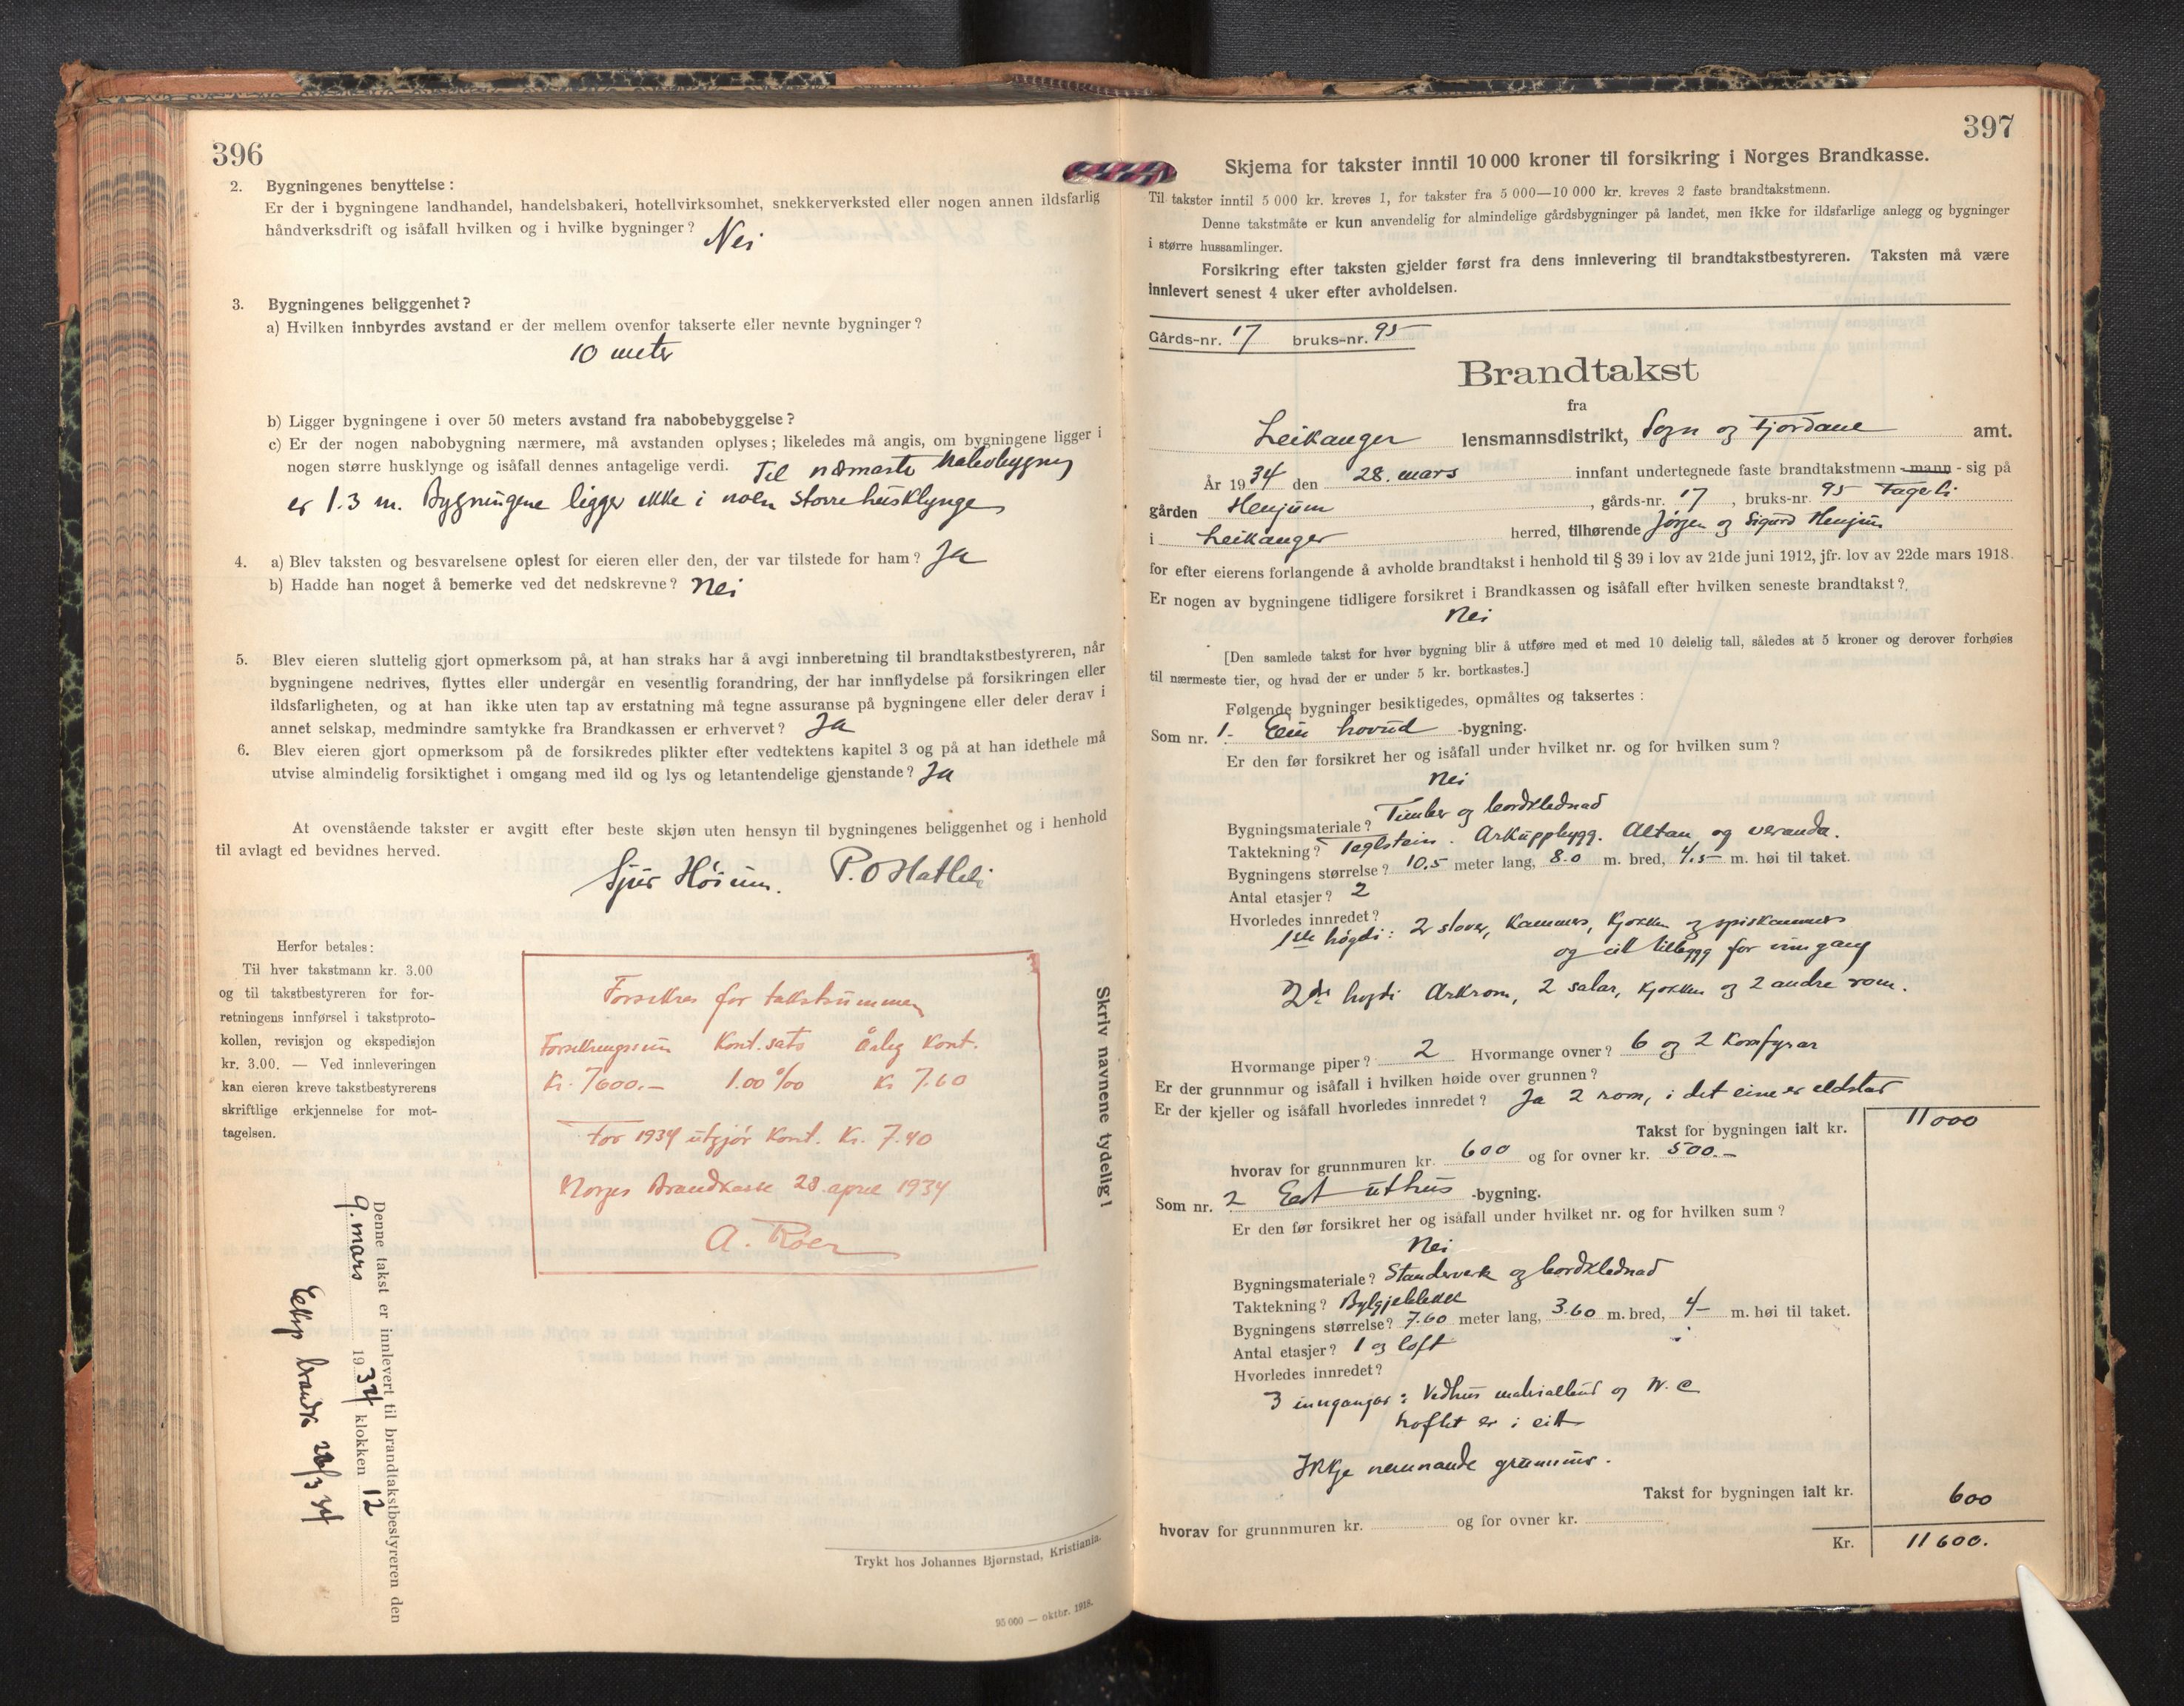 396
2. Bygningenes benyttelse :
Er der i bygningene landhandel, handelsbakeri, hotellvirksomhet, snekkerverksted eller nogen annen ildsfarlig
håndverksdrift og isåfall hvilken og i hvilke bygninger? Nei
3. Bygningenes beliggenhet?
a) Hvilken innbyrdes avstand er der mellem ovenfor takserte eller nevnte bygninger?
10 meter
b) Ligger bygningene i over 50 meters avstand fra nabobebyggelse?
c) Er der nogen nabobygning nærmere, må avstanden oplyses; likeledes må angis, om bygningene ligger i
nogen større husklynge og isåfall dennes antagelige verdi. Til næmaste nabobygning
er 13 m. Bygningene ligger ikke i noen større husklynge
4. a) Blev taksten og besvarelsene oplest for eieren eller den, der var tilstede for ham? Ja
b) Hadde han noget å bemerke ved det nedskrevne? Nei
5. Blev eieren sluttelig gjort opmerksom på, at han straks har å avgi innberetning til brandtakstbestyreren, når
bygningene nedrives, flyttes eller undergår en vesentlig forandring, der har innflydelse på forsikringen eller
ildsfarligheten, og at han ikke uten tap av erstatning må tegne assuranse på bygningene eller deler derav i
annet selskap, medmindre samtykke fra Brandkassen er erhvervet? Ja
6. Blev eieren gjort opmerksom på de forsikredes plikter efter vedtektens kapitel 3 og på at han idethele må
utvise almindelig forsiktighet i omgang med ild og lys og letantendelige gjenstande? Ja
At ovenstående takster er avgitt efter beste skjøn uten hensyn til bygningenes beliggenhet og i henhold
til avlagt ed bevidnes herved.
Sjur Høium. P. O Hatleli
Herfor betales:
Til hver takstmann kr. 3.00
og til takstbestyreren for for-
retningens innførsel i takstproto-
kollen, revisjon og ekspedisjon
kr. 3.00. — Ved innleveringen
kan eieren kreve takstbestyrerens
skriftlige erkjennelse for mot-
tagelsen.
Forsikres for takstsummen
Forsikringssum Kont. sats Årlig Kont.
Kr. 7600.- 1.00 ‰ Kr 7.60
For 1934 utgjør Kont. Kr. 7.40
Norges Brandkasse 28. april 1934
A. Röer
Denne takst er innlevert til brandtakstbestyreren den
9. mars 1934 klokken 12
Eksp brandk 28/3 34
Skriv navnene tydelig!
Trykt hos Johannes Bjørnstad, Kristiania.
95 000 — oktbr. 1918.
397
Skjema for takster inntil 10 000 kroner til forsikring i Norges Brandkasse.
Til takster inntil 5 000 kr. kreves 1, for takster fra 5 000—10 000 kr. kreves 2 faste brandtakstmenn.
Denne takstmåte er kun anvendelig for almindelige gårdsbygninger på landet, men ikke for ildsfarlige anlegg og bygninger
i større hussamlinger.
Forsikring efter taksten gjelder først fra dens innlevering til brandtakstbestyreren. Taksten må være
innlevert senest 4 uker efter avholdelsen.
Gårds-nr. 17 bruks-nr. 95
Brandtakst
fra
Leikanger lensmannsdistrikt, Sogn og Fjordane amt.
År 1934 den 28. mars innfant undertegnede faste brandtakstmenn - mann - sig på
gården Henjum, gårds-nr. 17, bruks-nr. 95 Fagerli
i Leikanger herred, tilhørende Jørgen og Sigurd Henjum
for efter eierens forlangende å avholde brandtakst i henhold til § 39 i lov av 21de juni 1912, jfr. lov av 22de mars 1918.
Er nogen av bygningene tidligere forsikret i Brandkassen og isåfall efter hvilken seneste brandtakst?
Nei
[Den samlede takst for hver bygning blir å utføre med et med 10 delelig tall, således at 5 kroner og derover forhøies
til nærmeste tier, og hvad der er under 5 kr. bortkastes.]
Følgende bygninger besiktigedes, opmåltes og taksertes :
Som nr. 1- Ein hovud -bygning.
Er den før forsikret her og isåfall under hvilket nr. og for hvilken sum?
Nei
Bygningsmateriale? Timber og bordklednad
Taktekning? Teglstein. Arkuppbygg. Altan og veranda.
Bygningens størrelse? 10.5 meter lang, 8.0 m. bred, 4.5 m. høi til taket.
Antal etasjer? 2
Hvorledes innredet?
1ste høgdi: 2 stover, kammers, kjøkken og spiskammers
og eit tilbygg for inngang
2dre høgdi Arkrom, 2 salar, kjøkken og 2 andre rom.
Hvormange piper? 2 Hvormange ovner? 6 og 2 komfyrar
Er der grunnmur og isåfall i hvilken høide over grunnen?
Er der kjeller og isåfall hvorledes innredet? Ja 2 rom, i det eine er eldstad
Takst for bygningen ialt kr. 11000
hvorav for grunnmuren kr. 600 og for ovner kr. 500.-
Som nr. 2 Eit uthus -bygning.
Er den før forsikret her og isåfall under hvilket nr. og for hvilken sum?
Nei
Bygningsmateriale? Standerverk og bordklednad
Taktekning? Bylgjeblekk
Bygningens størrelse? 7.60 meter lang, 3.60 m. bred, 4- m. høi til taket.
Antal etasjer? 1 og loft
Hvorledes innredet?
3 inngangar: Vedhus matrialbud og W. C
loftet er i eitt
Ikkje nemnande grunnmur.
Takst for bygningen ialt kr. 600
hvorav for grunnmuren kr. og for ovner kr.
Kr. 11600.